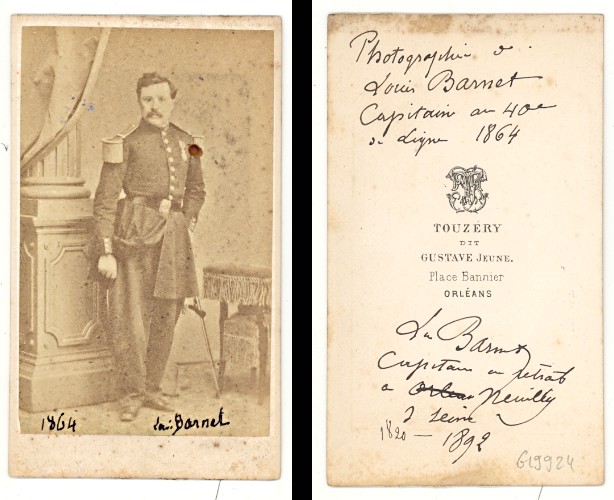 1864
Louis Barnet
Photographie de
Louis Barnet
Capitaine au 40e
de Ligne 1864
TOUZÉRY
DIT
GUSTAVE JEUNE.
Place Bannier
ORLÉANS
Ls Barnet
Capitaine en retraite
a Neuilly
s Seine
1820 — 1892
G19924